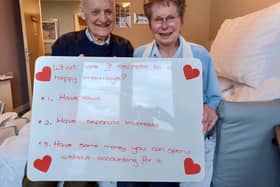 What are 3 secrets to a
happy marriage?
1, Have rows
2. Have separate interests
3. Have some money you can spend
without accounting for it